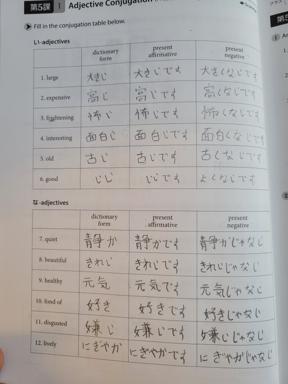 第5課 1 Adjective Conjugation
Fill in the conjugation table below.
い-adjectives
dictionary form present affirmative present negative
1. large 大きい 大きいです 大きくないです
2. expensive 高い 高いです 高くないです
3. frightening 怖い 怖いです 怖くないです
4. interesting 面白い 面白いです 面白くないです
5. old 古い 古いです 古くないです
6. good いい いいです よくないです
な-adjectives
dictionary form present affirmative present negative
7. quiet 静か 静かです 静かじゃない
8. beautiful きれい きれいです きれいじゃない
9. healthy 元気 元気です 元気じゃない
10. fond of 好き 好きです 好きじゃない
11. disgusted 嫌い 嫌いです 嫌いじゃない
12. lively にぎやか にぎやかです にぎやかじゃない